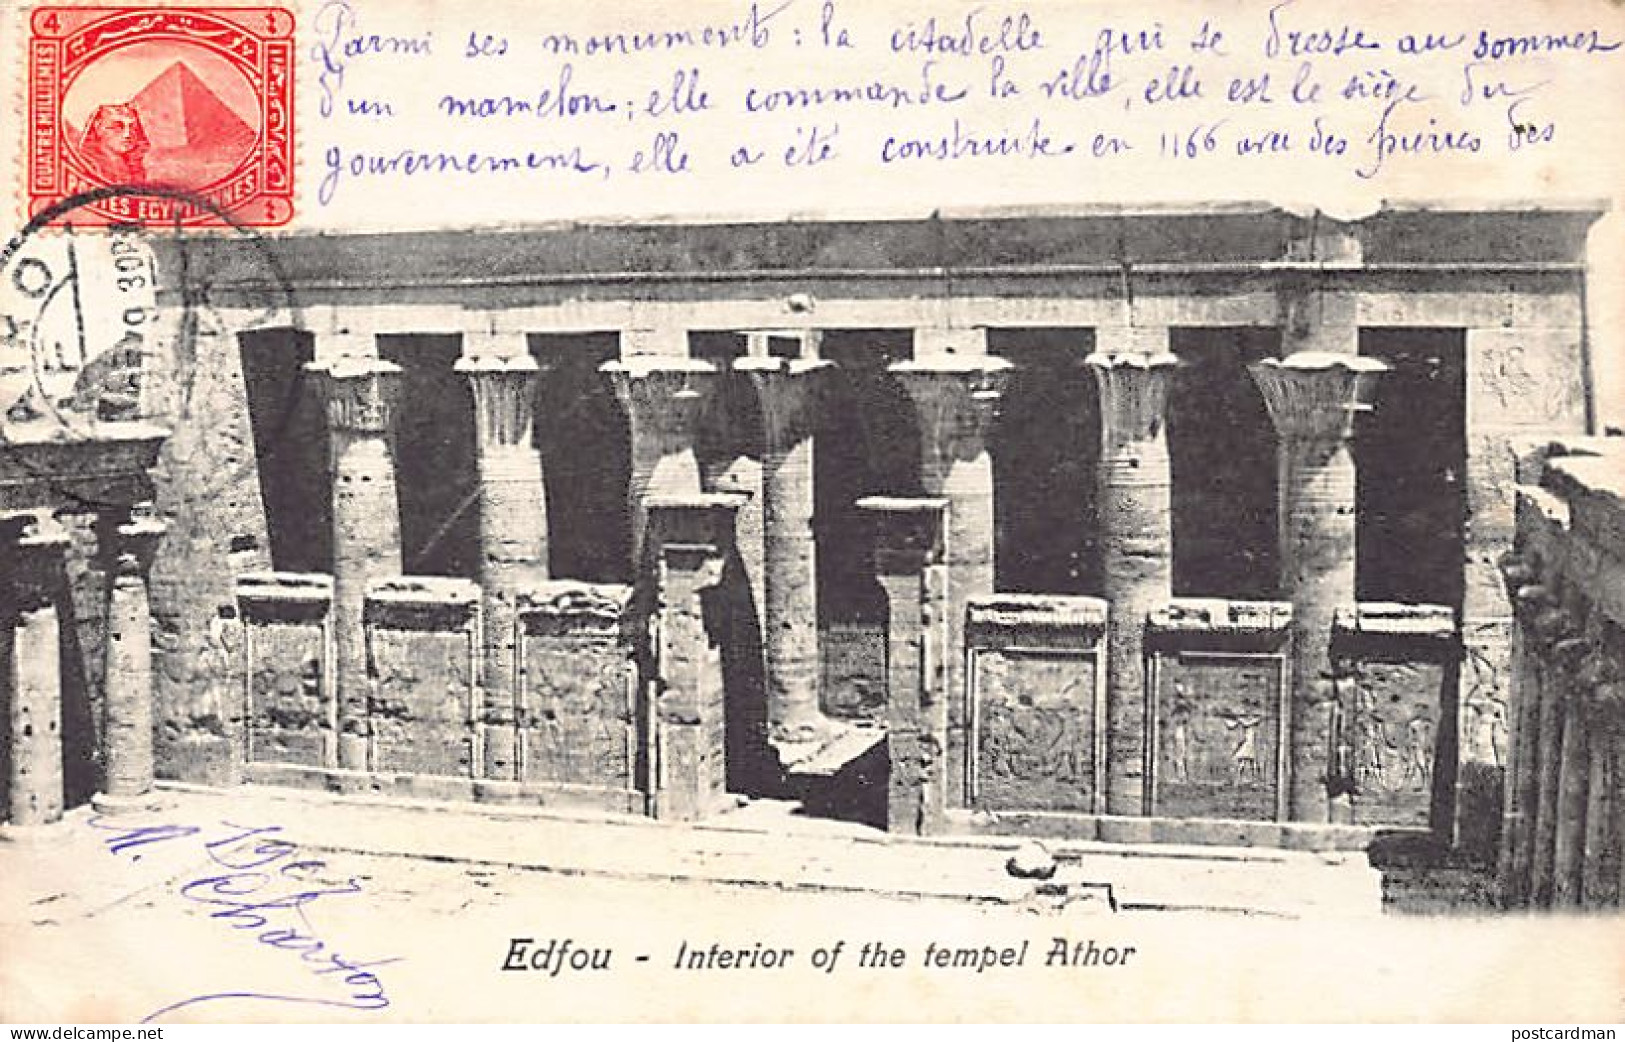 Parmi ses monuments : la citadelle qui se dresse au sommet
d'un mamelon; elle commande la ville, elle est le siège du
gouvernement, elle a été construite en 1166 avec des pierres des
4
QUATRE MILLIEMES
POSTES EGYPTIENNES
30PM
M.
Charton
Edfou - Interior of the tempel Athor
www.delcampe.net
postcardman